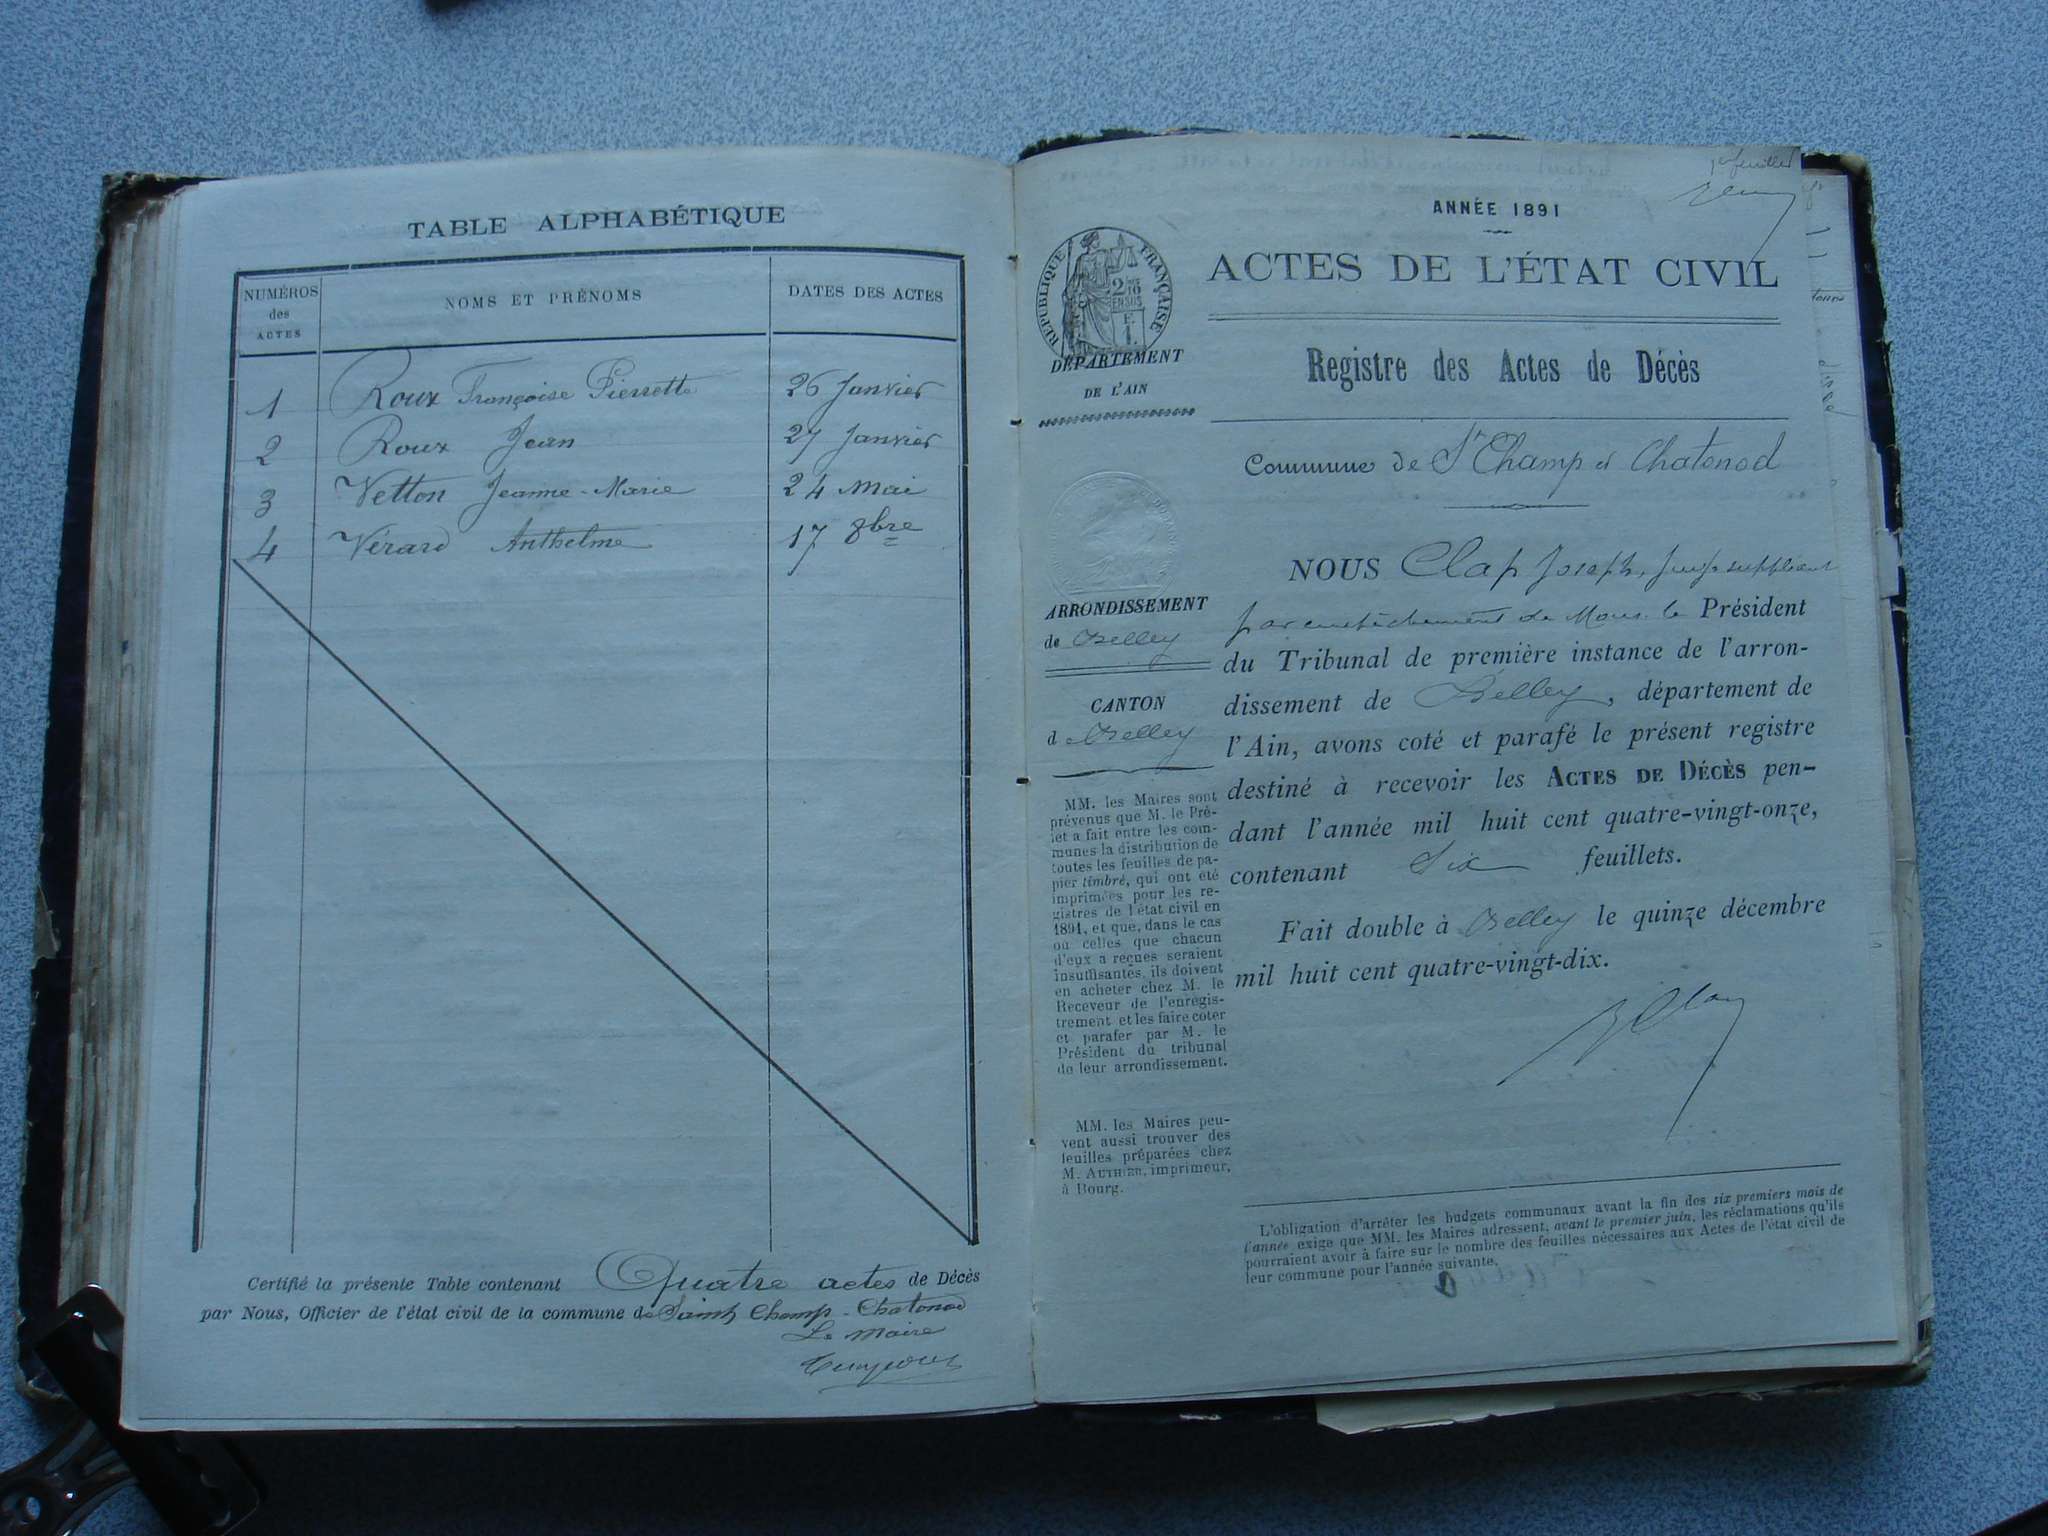 TABLE ALPHABÉTIQUE
NUMÉROS des ACTES
NOMS ET PRÉNOMS
DATES DES ACTES
1 Roux Françoise Pierrette 26 Janvier
2 Roux Jean 27 Janvier
3 Vetton Jeanne-Marie 24 Mai
4 Vérard Anthelme 17 8bre
Certifié la présente Table contenant Quatre actes de Décès
par Nous, Officier de l'état civil de la commune de Saint Champ-Chatonod
Le Maire
1er feuillet
ANNÉE 1891
ACTES DE L'ÉTAT CIVIL
RÉPUBLIQUE FRANÇAISE
DÉPARTEMENT
DE L'AIN
Registre des Actes de Décès
Commune de St Champ et Chatonod
ARRONDISSEMENT
de Belley
CANTON
d Belley
MM. les Maires sont
prévenus que M. le Pré-
fet a fait entre les com-
munes la distribution de
toutes les feuilles de pa-
pier timbré, qui ont été
imprimées pour les re-
gistres de l'état civil en
1891, et que, dans le cas
où celles que chacun
d'eux a reçues seraient
insuffisantes, ils doivent
en acheter chez M. le
Receveur de l'enregis-
trement et les faire coter
et parafer par M. le
Président du tribunal
de leur arrondissement.
MM. les Maires peu-
vent aussi trouver des
feuilles préparées chez
M. AUTHIER, imprimeur,
à Bourg.
NOUS Clap Joseph, Juge suppléant
par empêchement de Mons. le Président
du Tribunal de première instance de l'arron-
dissement de Belley, département de
l'Ain, avons coté et parafé le présent registre
destiné à recevoir les ACTES DE DÉCÈS pen-
dant l'année mil huit cent quatre-vingt-onze,
contenant Six feuillets.
Fait double à Belley le quinze décembre
mil huit cent quatre-vingt-dix.
L'obligation d'arrêter les budgets communaux avant la fin des six premiers mois de
l'année exige que MM. les Maires adressent, avant le premier juin, les réclamations qu'ils
pourraient avoir à faire sur le nombre des feuilles nécessaires aux Actes de l'état civil de
leur commune pour l'année suivante.